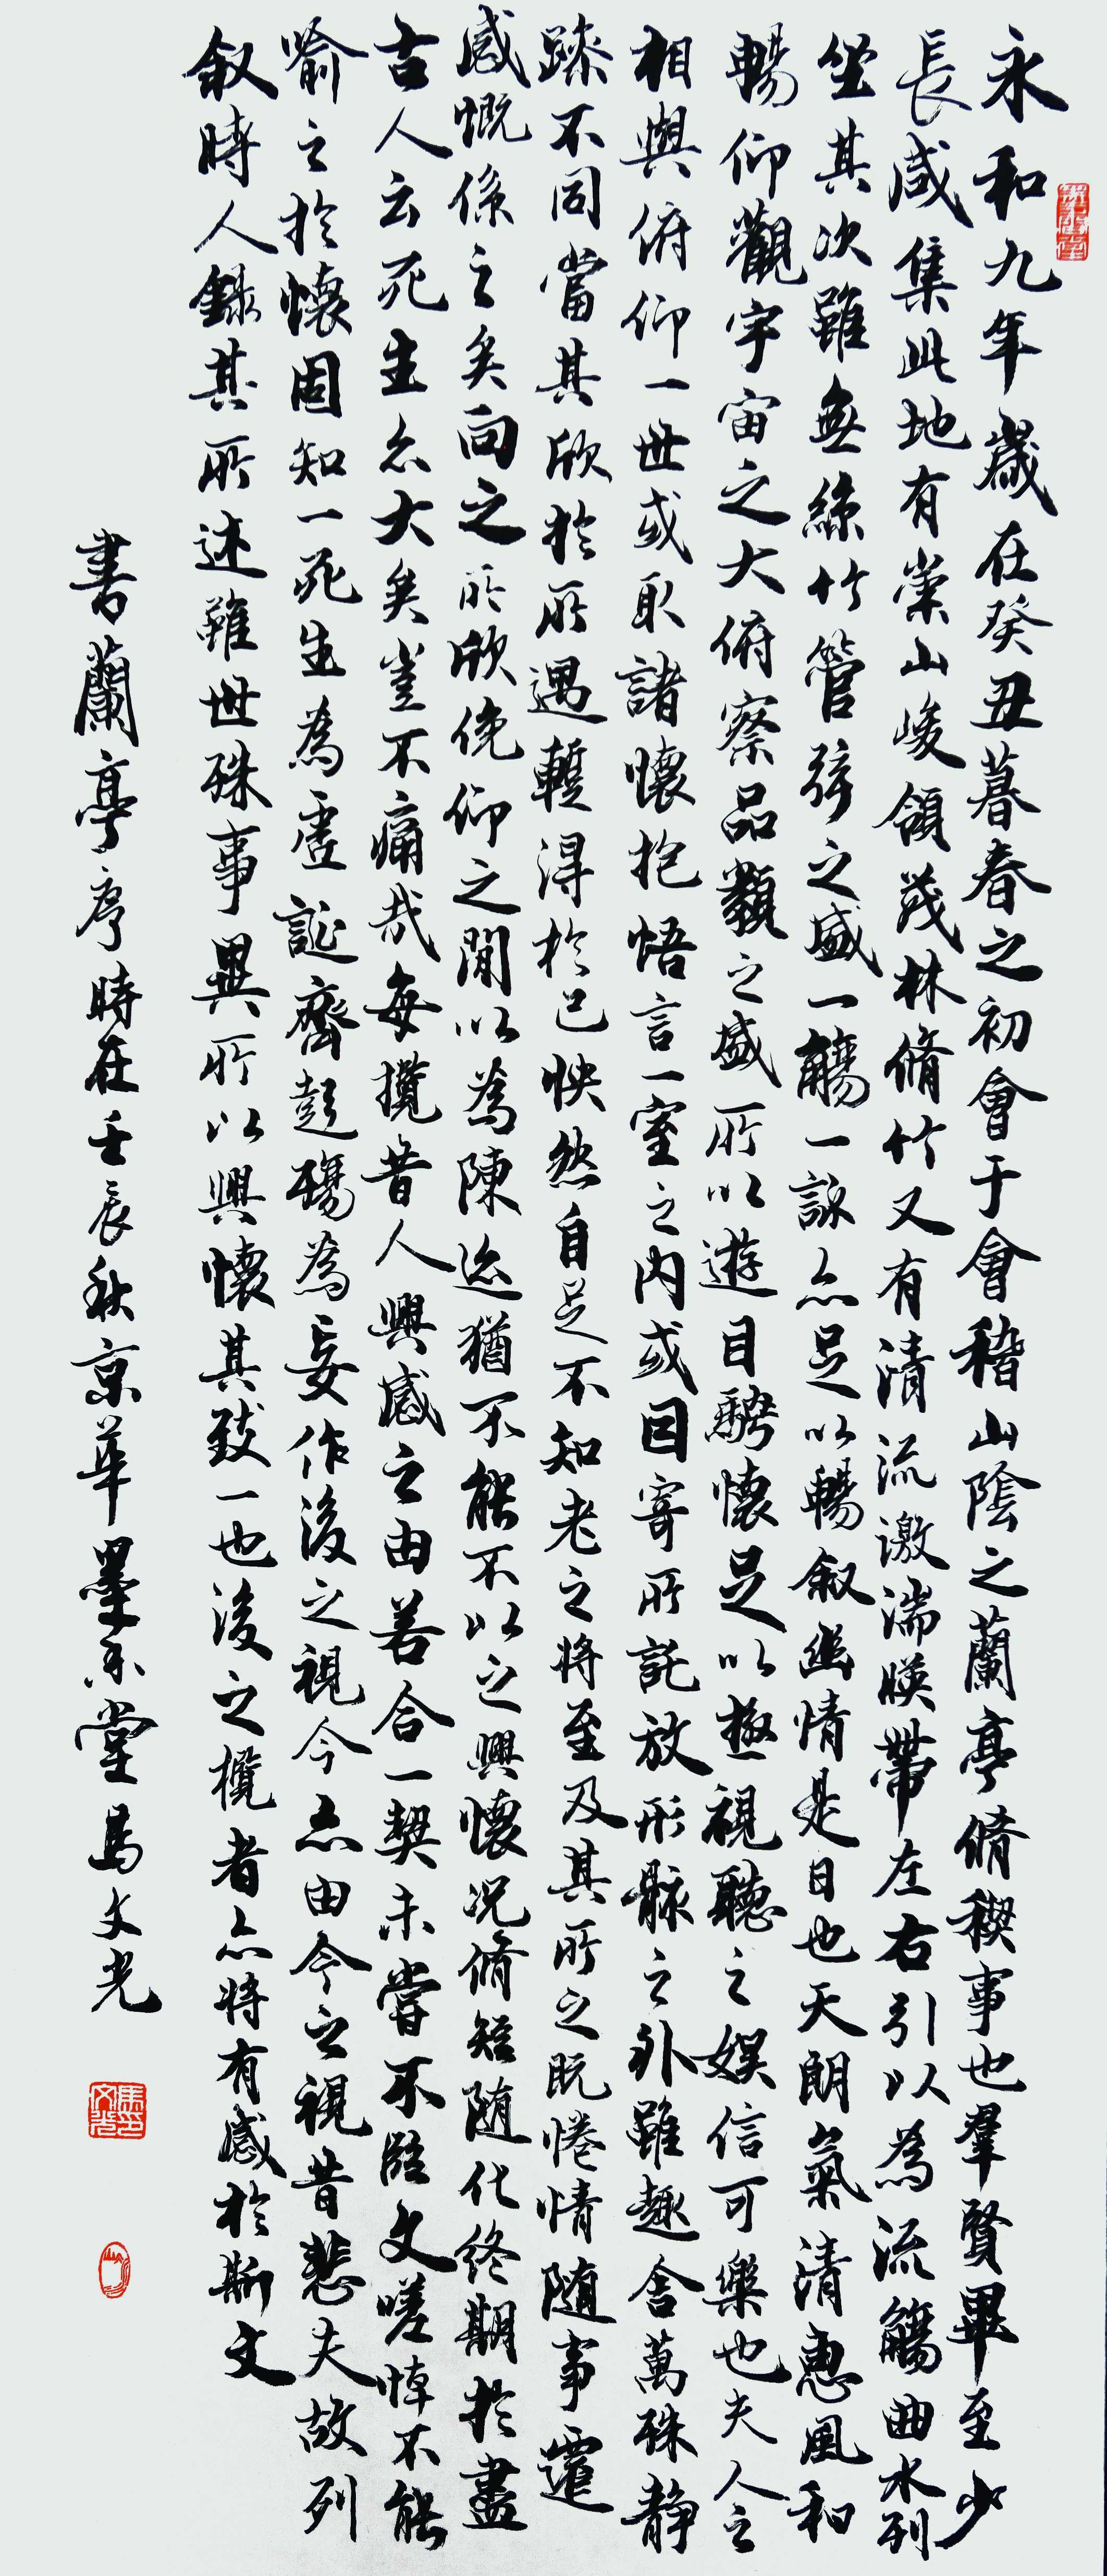 永和九年歲在癸丑暮春之初會于會稽山陰之蘭亭脩禊事也羣賢畢至少
長咸集此地有崇山峻領茂林脩竹又有清流激湍暎帶左右引以為流觴曲水列
坐其次雖無絲竹管弦之盛一觴一詠亦足以暢叙幽情是日也天朗氣清惠風和
暢仰觀宇宙之大俯察品類之盛所以遊目騁懷足以極視聽之娛信可樂也夫人之
相與俯仰一世或取諸懷抱悟言一室之內或因寄所託放形骸之外雖趣舍萬殊静
躁不同當其欣於所遇蹔得於己怏然自足不知老之將至及其所之既惓情随事遷
感慨係之矣向之所欣俛仰之閒以為陳迹猶不能不以之興懷況脩短随化終期於盡
古人云死生亦大矣豈不痛哉每攬昔人興感之由若合一契未嘗不臨文嗟悼不能
喻之於懷固知一死生為虛誕齊彭殤為妄作後之視今亦由今之視昔悲夫故列
叙時人錄其所述雖世殊事異所以興懷其致一也後之攬者亦將有感於斯文
書蘭亭序時在壬辰秋京華墨禾堂馬文光